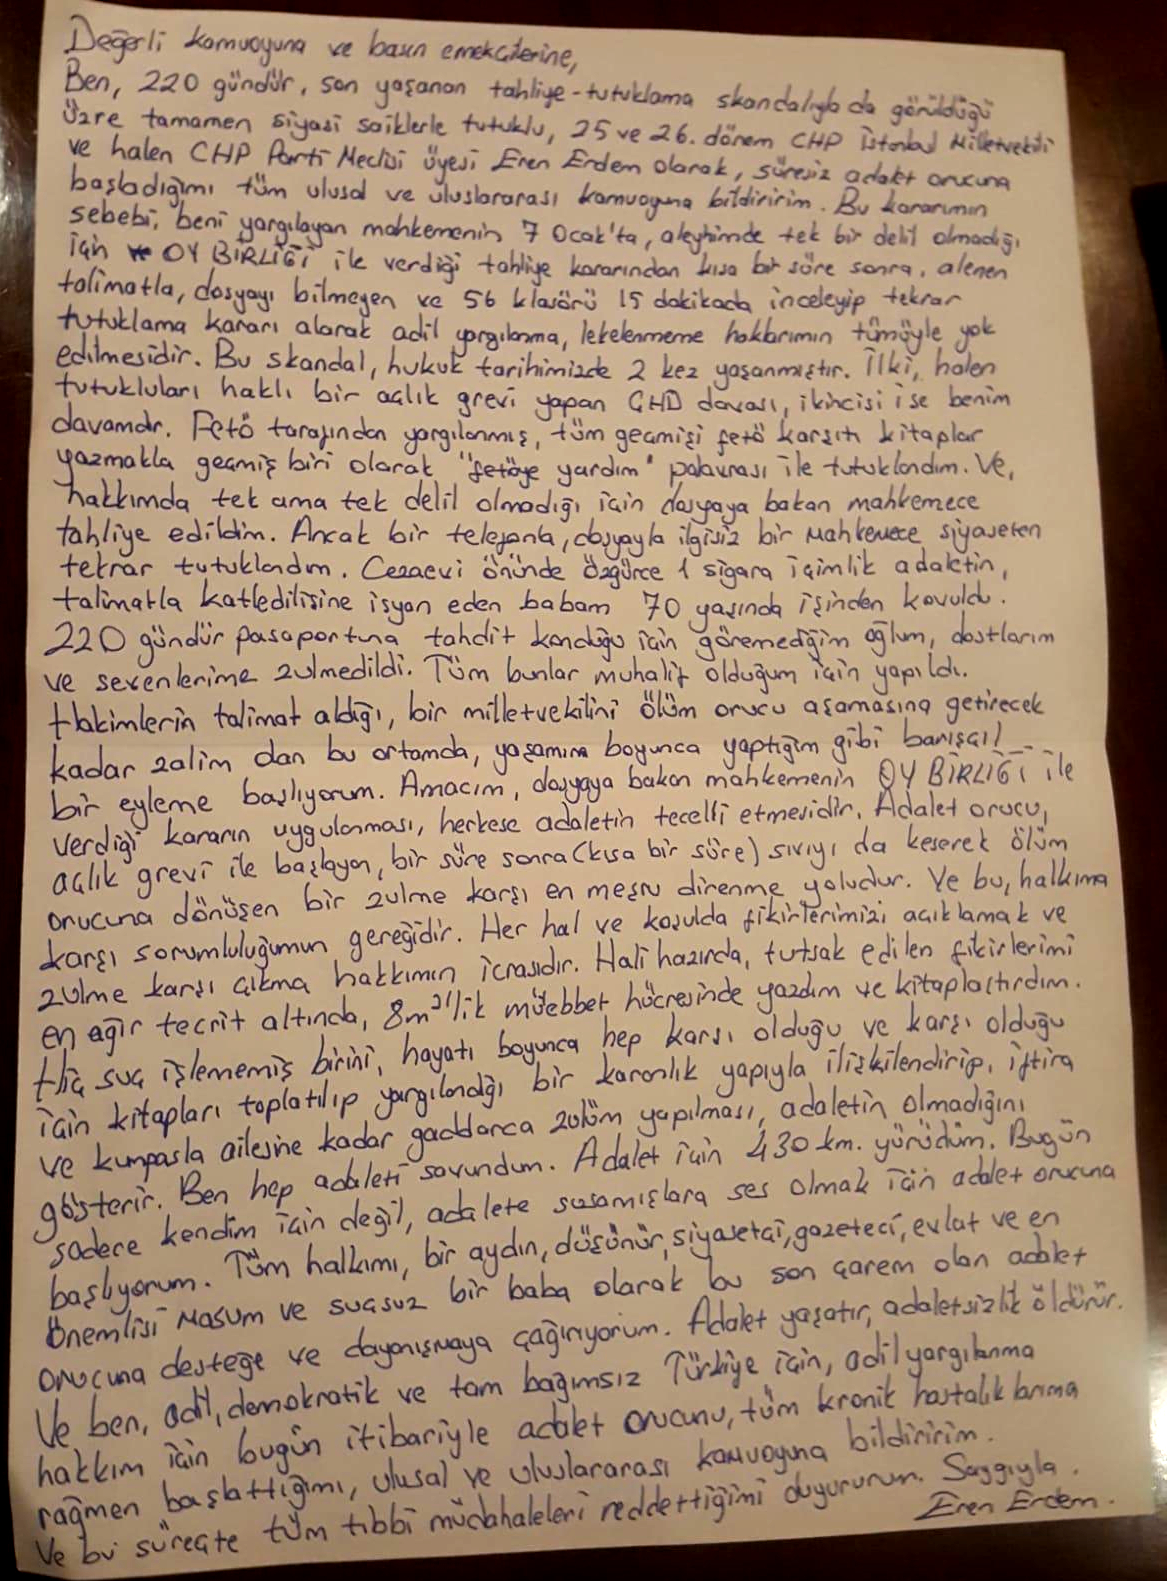 Değerli kamuoyuna ve basın emekçilerine,
Ben, 220 gündür, son yaşanan tahliye-tutuklama skandalıyla da görüldüğü
üzre tamamen siyasi saiklerle tutuklu, 25 ve 26. dönem CHP İstanbul Milletvekili
ve halen CHP Parti Meclisi üyesi Eren Erdem olarak, süresiz adalet orucuna
başladığımı tüm ulusal ve uluslararası kamuoyuna bildiririm. Bu kararımın
sebebi, beni yargılayan mahkemenin 7 Ocak'ta, aleyhimde tek bir delil olmadığı
için OY BİRLİĞİ ile verdiği tahliye kararından kısa bir süre sonra, alenen
talimatla, dosyayı bilmeyen ve 56 klasörü 15 dakikada inceleyip tekrar
tutuklama kararı alarak adil yargılanma, lekelenmeme haklarımın tümüyle yok
edilmesidir. Bu skandal, hukuk tarihimizde 2 kez yaşanmıştır. İlki, halen
tutukluları haklı bir açlık grevi yapan ÇHD davası, ikincisi ise benim
davamdır. Fetö tarafından yargılanmış, tüm geçmişi fetö karşıtı kitaplar
yazmakla geçmiş biri olarak "fetöye yardım" palavrası ile tutuklandım. Ve,
hakkımda tek ama tek delil olmadığı için dosyaya bakan mahkemece
tahliye edildim. Ancak bir telefonla, dosyayla ilgisiz bir mahkemece siyaseten
tekrar tutuklandım. Cezaevi önünde özgürce 1 sigara içimlik adaletin,
talimatla katledilişine isyan eden babam 70 yaşında işinden kovuldu.
220 gündür pasaportuna tahdit konduğu için göremediğim oğlum, dostlarım
ve sevenlerime zulmedildi. Tüm bunlar muhalif olduğum için yapıldı.
Hakimlerin talimat aldığı, bir milletvekilini ölüm orucu aşamasına getirecek
kadar zalim olan bu ortamda, yaşamım boyunca yaptığım gibi barışçıl
bir eyleme başlıyorum. Amacım, dosyaya bakan mahkemenin OY BİRLİĞİ ile
verdiği kararın uygulanması, herkese adaletin tecelli etmesidir. Adalet orucu,
açlık grevi ile başlayan, bir süre sonra (kısa bir süre) sıvıyı da keserek ölüm
orucuna dönüşen bir zulme karşı en meşru direnme yoludur. Ve bu, halkıma
karşı sorumluluğumun gereğidir. Her hal ve koşulda fikirlerimizi açıklamak ve
zulme karşı çıkma hakkımın icrasıdır. Hali hazırda, tutsak edilen fikirlerimi
en ağır tecrit altında, 8m²'lik müebbet hücresinde yazdım ve kitaplaştırdım.
Hiç suç işlememiş birini, hayatı boyunca hep karşı olduğu ve karşı olduğu
için kitapları toplatılıp yargılandığı bir karanlık yapıyla ilişkilendirip, iftira
ve kumpasla ailesine kadar gaddarca zulüm yapılması, adaletin olmadığını
gösterir. Ben hep adaleti savundum. Adalet için 430 km. yürüdüm. Bugün
sadece kendim için değil, adalete susamışlara ses olmak için adalet orucuna
başlıyorum. Tüm halkımı, bir aydın, düşünür, siyasetçi, gazeteci, evlat ve en
önemlisi masum ve suçsuz bir baba olarak bu son çarem olan adalet
orucuna desteğe ve dayanışmaya çağırıyorum. Adalet yaşatır, adaletsizlik öldürür.
Ve ben, adil, demokratik ve tam bağımsız Türkiye için, adil yargılanma
hakkım için bugün itibariyle adalet orucunu, tüm kronik hastalıklarıma
rağmen başlattığımı, ulusal ve uluslararası kamuoyuna bildiririm.
Ve bu süreçte tüm tıbbi müdahaleleri reddettiğimi duyururum. Saygıyla.
Eren Erdem.